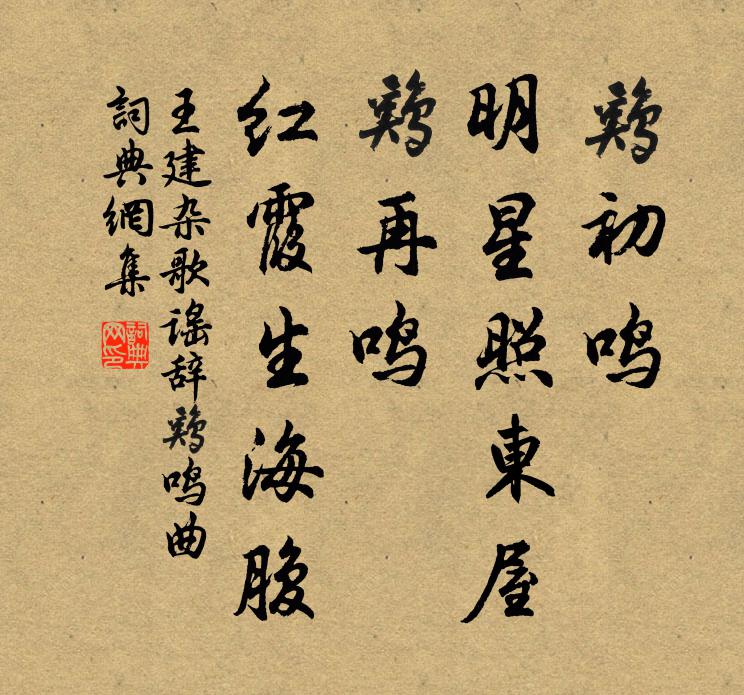 鷄初鸣
明星照東屋
鷄再鸣
红霞生海腹
王建杂歌谣辞鷄鸣曲
詞典網集
詞典网印